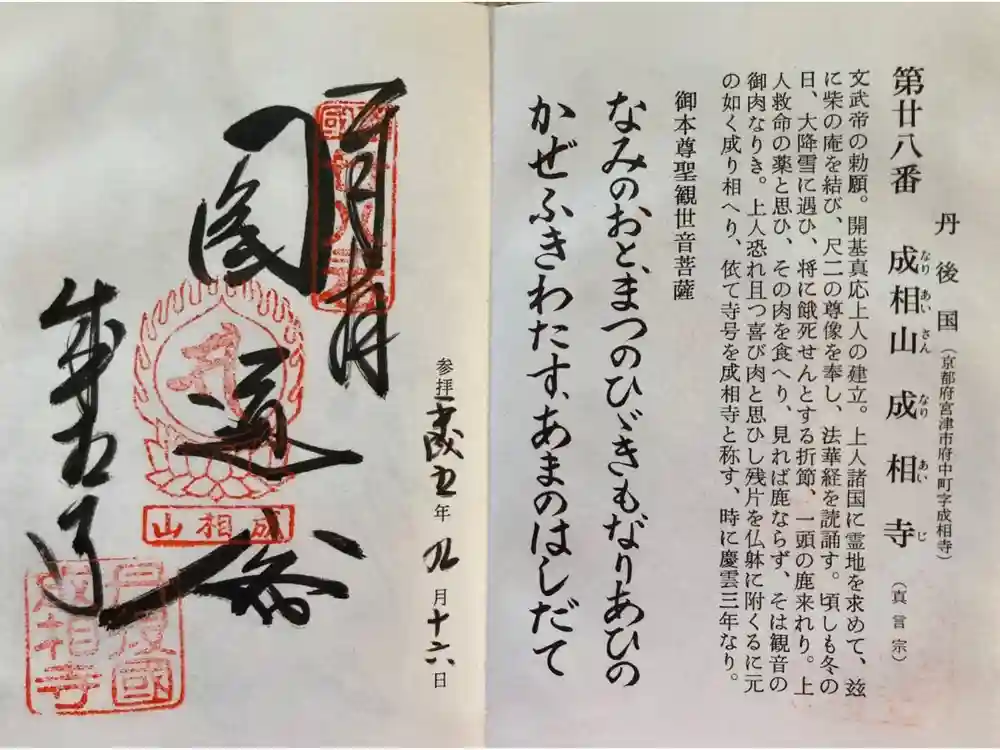 第廿八番
丹後国（京都府宮津市府中町字成相寺）
成相山成相寺（真言宗）
なりあいさん なりあいじ
文武帝の勅願。開基真応上人の建立。上人諸国に霊地を求めて、玆
に柴の庵を結び、尺二の尊像を奉し、法華経を読誦す。頃しも冬の
日、大降雪に遇ひ、将に餓死せんとする折節、一頭の鹿来れり。上
人救命の薬と思ひ、その肉を食へり、見れば鹿ならず、そは観音の
御肉なりき。上人恐れ且つ喜び肉と思ひし残片を仏躰に附くるに元
の如く成り相へり、依て寺号を成相寺と称す、時に慶雲三年なり。
御本尊聖観世音菩薩
なみのおと、まつのひゞきもなりあひの
かぜふきわたす、あまのはしだて
参拝
年九月十六日
成相山
丹後國
成相寺